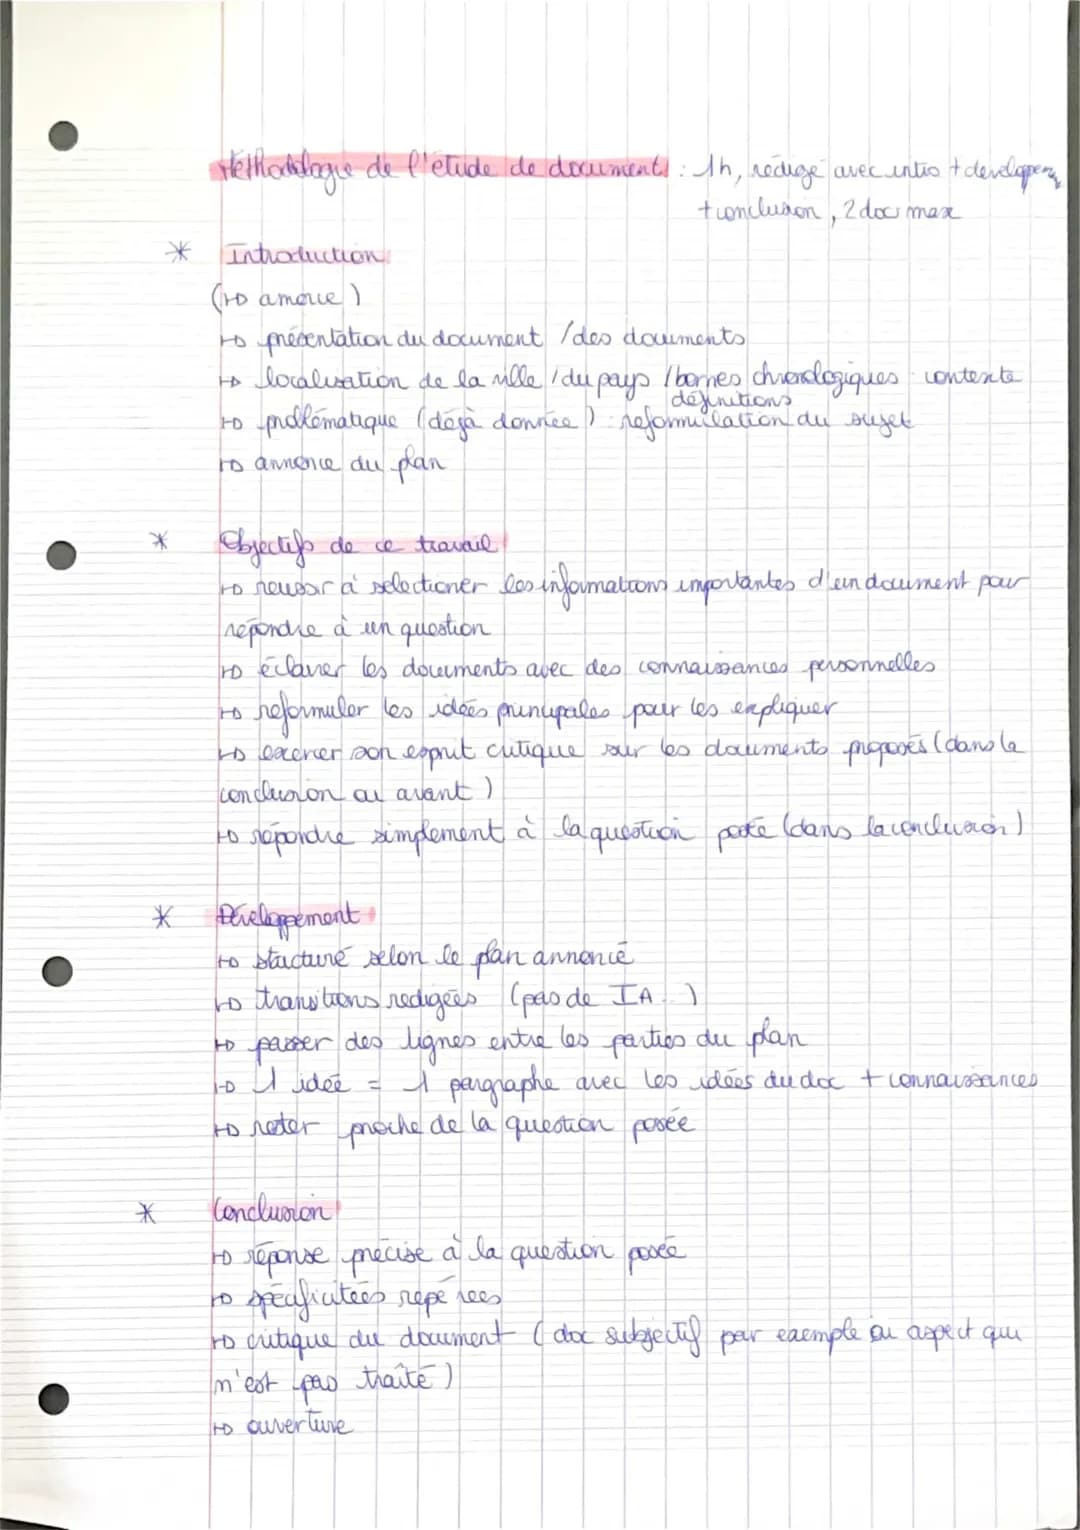 Méthodologie de l'étude de document : 1h, rédigé avec intro + developpem
+ conclusion, 2 doc max
* Introduction
(→ amorce)
→ présentation du document / des documents
→ localisation de la ville / du pays / bornes chronologiques contexte
définitions
→ problématique (déjà donnée) : reformulation du sujet
→ annonce du plan
* Objectifs de ce travail
→ reussir à selectioner les informations importantes d'un document pour
répondre à un question
→ éclairer les documents avec des connaissances personnelles
→ reformuler les idées principales pour les expliquer
→ exercer son esprit critique sur les documents proposés (dans la
conclusion ou avant)
→ répondre simplement à la question posée (dans la conclusion)
* Développement
→ stucturé selon le plan annoncé
→ transitions redigées (pas de IA..)
→ passer des lignes entre les parties du plan
→ 1 idée = 1 pargraphe avec les idées du doc + connaissances
→ rester proche de la question posée
* Conclusion
→ réponse précise à la question posée
→ spécificitées repérées
→ critique du document (doc subjectif par exemple ou aspect qui
n'est pas traîté)
→ ouverture